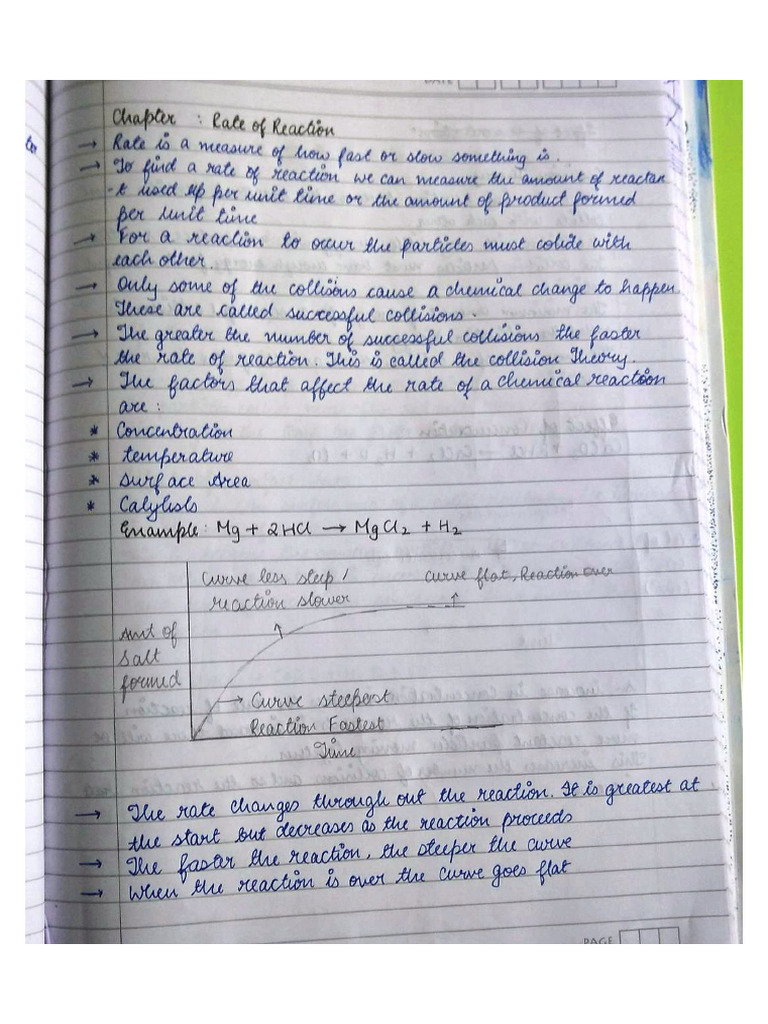 Chapter : Rate of Reaction
→ Rate is a measure of how fast or slow something is.
→ To find a rate of reaction we can measure the amount of reactan
-t used up per unit time or the amount of product formed
per unit time
→ For a reaction to occur the particles must colide with
each other.
→ Only some of the collisons cause a chemical change to happen
These are called successful collisions.
→ The greater the number of successful collisions the faster
the rate of reaction. This is called the collision Theory.
→ The factors that affect the rate of a chemical reaction
are :
* Concentration
* temperature
* Surface Area
* Calylists
Example : Mg + 2HCl → MgCl2 + H2
Curve less steep /
reaction slower
Curve flat, Reaction over
Amt of
Salt
formed
→ Curve steepest
Reaction Fastest
Time
→ The rate changes through out the reaction. It is greatest at
the start but decreases as the reaction proceeds
→ The faster the reaction, the steeper the curve
→ When the reaction is over the curve goes flat
PAGE